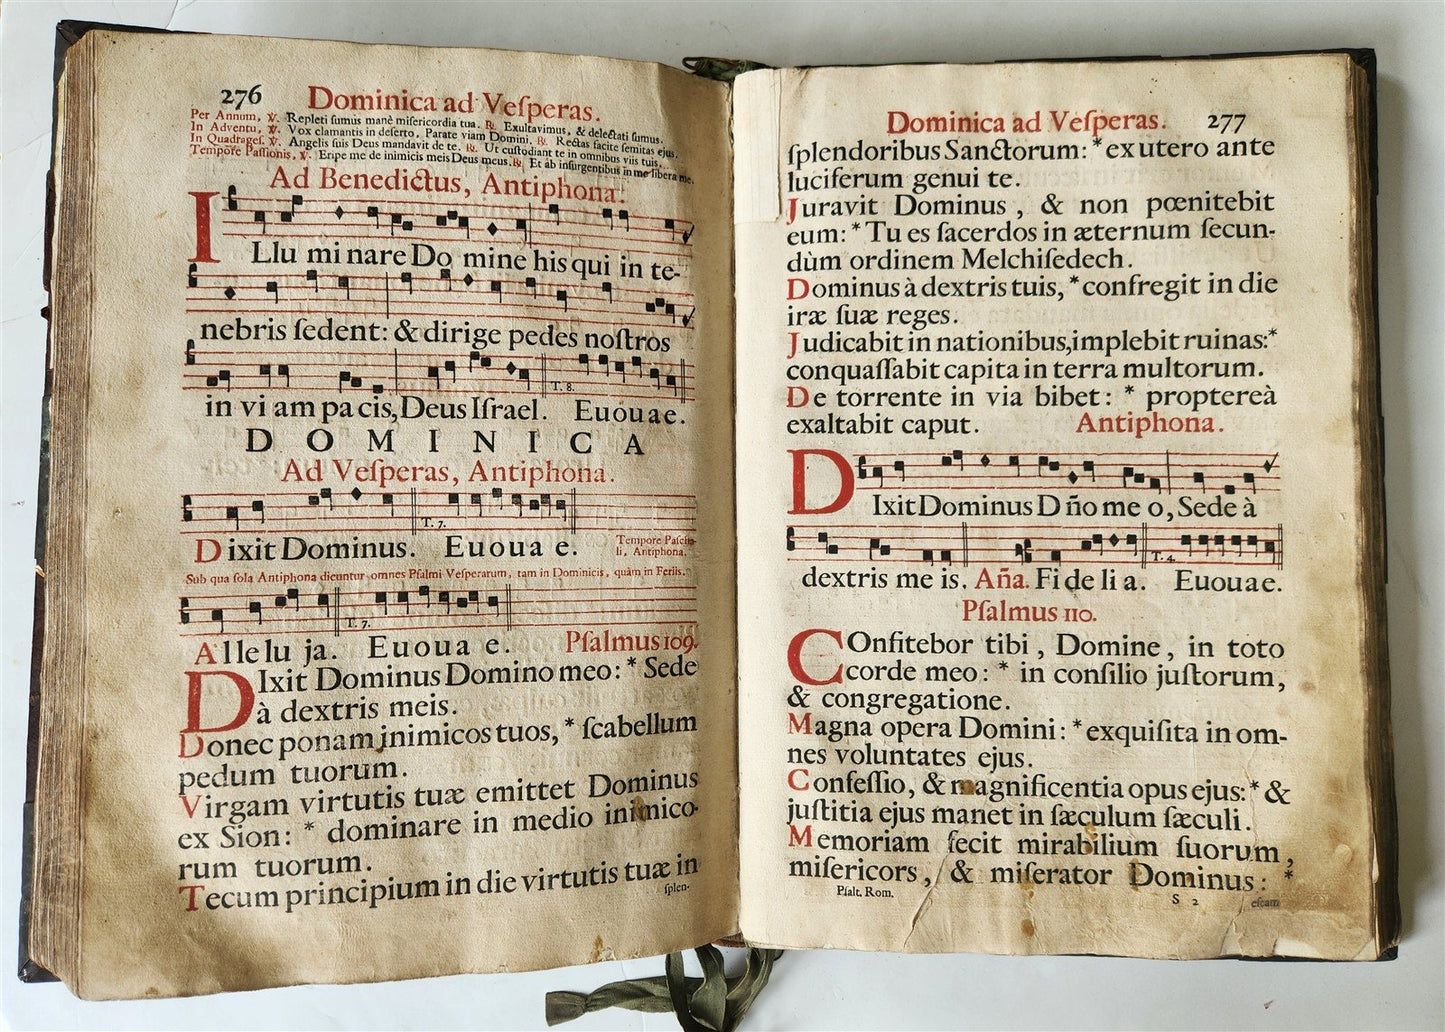 276 Dominica ad Veſperas.
Per Annum, ℣. Repleti ſumus manè miſericordia tua. ℟. Exultavimus, & delectati ſumus.
In Adventu, ℣. Vox clamantis in deſerto, Parate viam Domini. ℟. Rectas facite ſemitas ejus.
In Quadrageſ. ℣. Angelis ſuis Deus mandavit de te. ℟. Ut cuſtodiant te in omnibus viis tuis.
Tempore Paſſionis, ℣. Eripe me de inimicis meis Deus meus. ℟. Et ab inſurgentibus in me libera me.
Ad Benedictus, Antiphona.
ILlu mi nare Do mine his qui in te-
nebris ſedent: & dirige pedes noſtros
T. 8.
in vi am pa cis, Deus Iſrael. Euouae.
DOMINICA
Ad Veſperas, Antiphona.
T. 7.
Dixit Dominus. Euoua e. Tempore Paſcha-
li, Antiphona.
Sub qua ſola Antiphona dicuntur omnes Pſalmi Veſperarum, tam in Dominicis, quàm in Feriis.
T. 7.
Alle lu ja. Euoua e. Pſalmus 109.
DIxit Dominus Domino meo: * Sede
à dextris meis.
Donec ponam inimicos tuos, * ſcabellum
pedum tuorum.
Virgam virtutis tuæ emittet Dominus
ex Sion: * dominare in medio inimico-
rum tuorum.
Tecum principium in die virtutis tuæ in
ſplen-
Dominica ad Veſperas. 277
ſplendoribus Sanctorum: * ex utero ante
luciferum genui te.
Juravit Dominus, & non pœnitebit
eum: * Tu es ſacerdos in æternum ſecun-
dùm ordinem Melchiſedech.
Dominus à dextris tuis, * confregit in die
iræ ſuæ reges.
Judicabit in nationibus, implebit ruinas: *
conquaſſabit capita in terra multorum.
De torrente in via bibet: * proptereà
exaltabit caput. Antiphona.
DIxit Dominus Dño me o, Sede à
T. 4.
dextris me is. Aña. Fi de li a. Euouae.
Pſalmus 110.
COnfitebor tibi, Domine, in toto
corde meo: * in conſilio juſtorum,
& congregatione.
Magna opera Domini: * exquiſita in om-
nes voluntates ejus.
Confeſſio, & magnificentia opus ejus: * &
juſtitia ejus manet in ſæculum ſæculi.
Memoriam fecit mirabilium ſuorum,
miſericors, & miſerator Dominus: *
Pſalt. Rom. S 2 eſcam